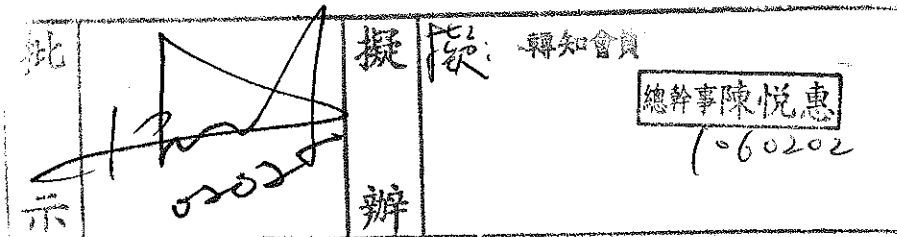 批示
0202
擬辦
擬: 轉知會員
總幹事陳悅惠
1060202